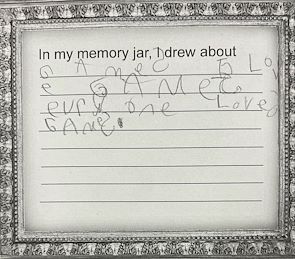 In my memory jar, I drew about
GAMeS I Lov
e GAMeS
evry one Loves
GAMeS.